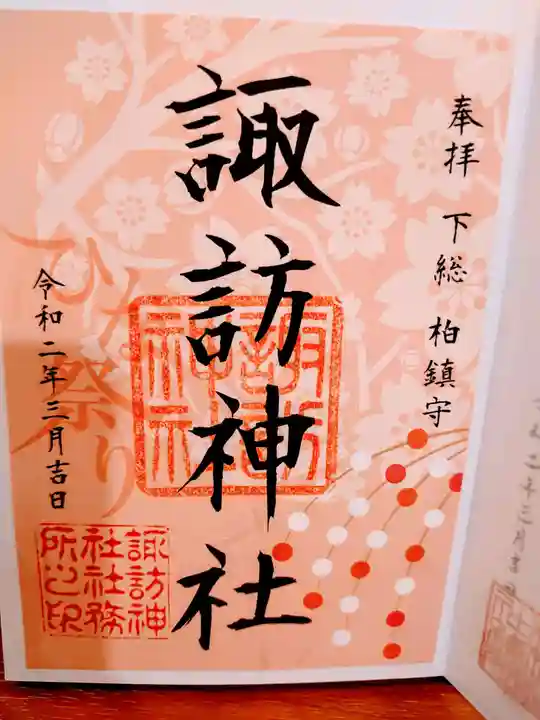 奉拝 下総 柏鎮守
諏訪神社
諏訪神社
ひな祭り
令和二年三月吉日
諏訪神
社社務
所之印